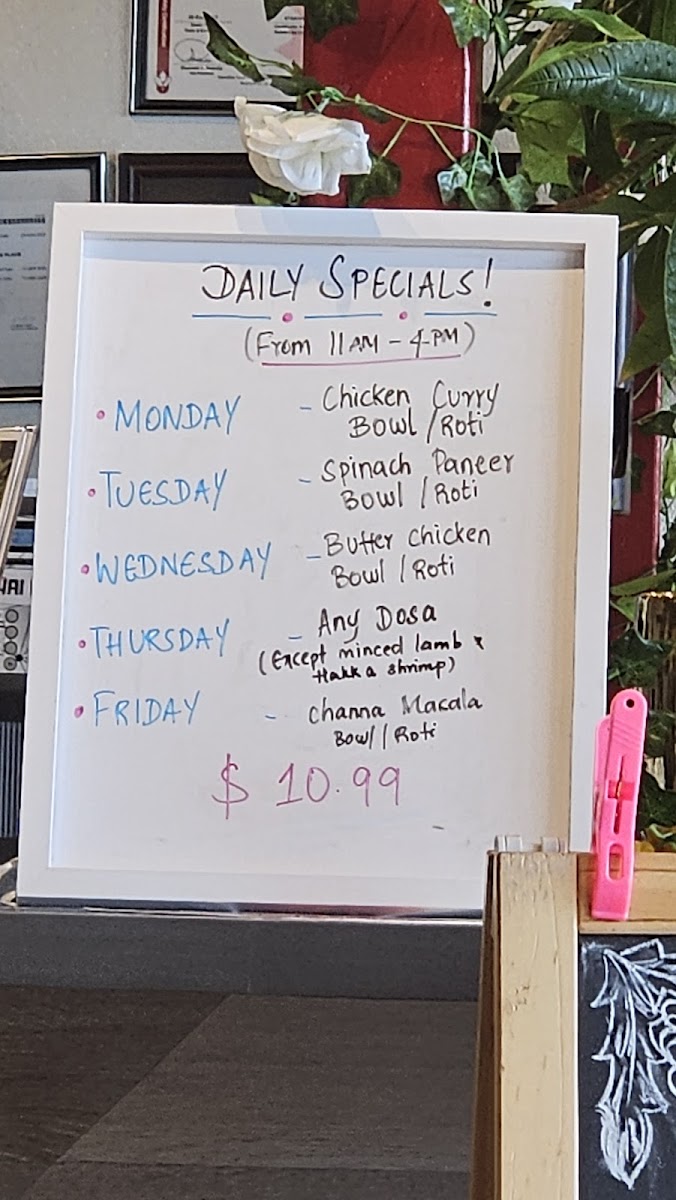 DAILY SPECIALS!
(From 11AM - 4PM)
• MONDAY - Chicken Curry
Bowl / Roti
• TUESDAY - Spinach Paneer
Bowl / Roti
• WEDNESDAY - Butter Chicken
Bowl / Roti
• THURSDAY - Any Dosa
(Except minced lamb &
Hakka shrimp)
• FRIDAY - Channa Masala
Bowl / Roti
$ 10.99